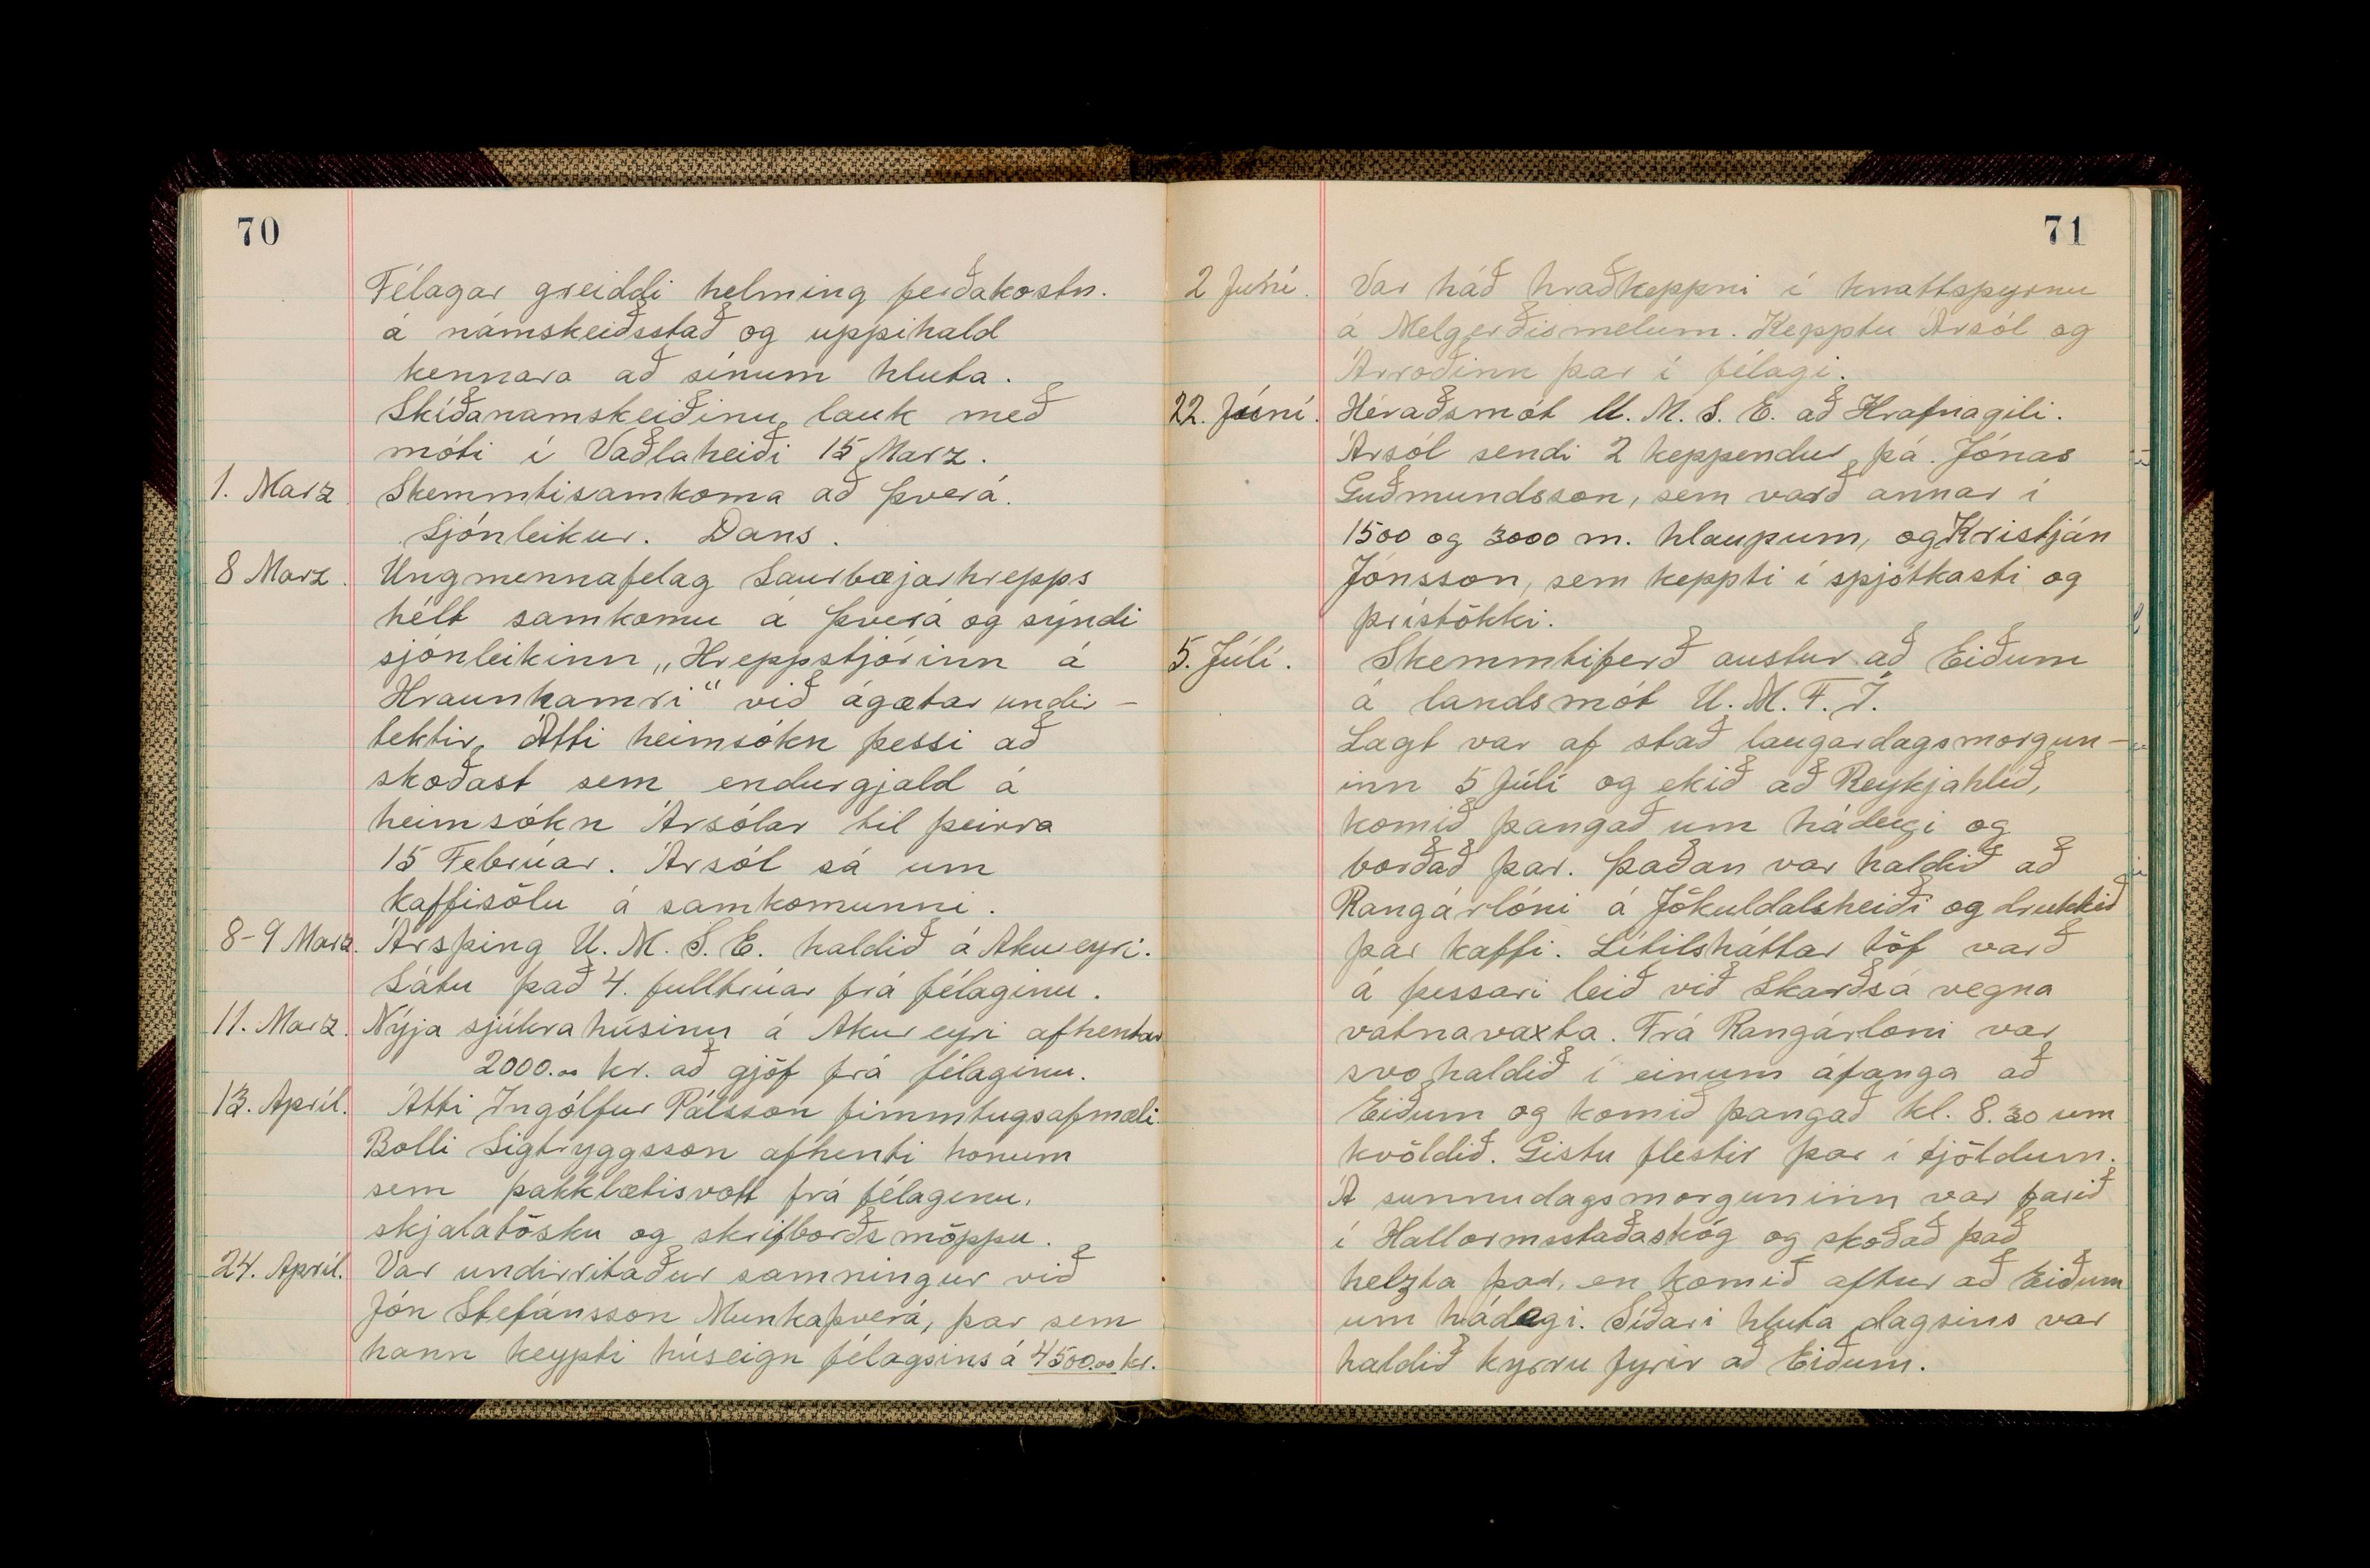 70
Félagar greiddi helming ferðakostn.
á námskeiðsstað og uppihald
kennara að sínum hluta.
Skíðanamskeiðinu lauk með
móti í Vaðlaheiði 15 Marz.
1. Marz Skemmtisamkoma að Þverá.
Sjónleikur. Dans.
8 Marz. Ungmennafelag Saurbæjarhrepps
hélt samkomu á Þverá og sýndi
sjónleikinn „Hreppstjórinn á
Hraunhamri“ við ágætar undir-
tektir. Átti heimsókn þessi að
skoðast sem endurgjald á
heimsókn Ársólar til þeirra
15 Febrúar. Ársól sá um
kaffisölu á samkomunni.
8-9 Marz. Ársþing U. M. S. E. haldið á Akureyri.
Sátu það 4. fulltrúar frá félaginu.
11. Marz. Nýja sjúkrahúsinu á Akureyri afhentar
2000.00 kr. að gjöf frá félaginu.
13. Apríl. Átti Ingólfur Pálsson fimmtugsafmæli.
Bolli Sigtryggsson afhenti honum
sem þakklætisvott frá félaginu,
skjalatösku og skrifborðsmöppu.
24. Apríl. Var undirritaður samningur við
Jón Stefánsson Munkaþverá, þar sem
hann keypti húseign félagsins á 4500.00 kr.
71
2 Júní. Var háð hraðkeppni í knattspyrnu
á Melgerðismelum. Kepptu Ársól og
Árroðinn þar í félagi.
22. Júní. Héraðsmót U. M. S. E. að Hrafnagili.
Ársól sendi 2 keppendur, þá Jónas
Guðmundsson, sem varð annar í
1500 og 3000 m. hlaupum, og Kristján
Jónsson, sem keppti í spjótkasti og
þrístökki.
5. Júlí. Skemmtiferð austur að Eiðum
á landsmót U. M. F. Í.
Lagt var af stað laugardagsmorgun-
inn 5 Júlí og ekið að Reykjahlíð,
komið þangað um hádegi og
borðað þar. Þaðan var haldið að
Rangárlóni á Jökuldalsheiði og drukkið
þar kaffi. Lítilsháttar töf varð
á þessari leið við Skarðsá vegna
vatnavaxta. Frá Rangárlóni var
svo haldið í einum áfanga að
Eiðum og komið þangað kl. 8.30 um
kvöldið. Gistu flestir þar í tjöldum.
Á sunnudagsmorguninn var farið
í Hallormsstaðaskóg og skoðað það
helzta þar, en komið aftur að Eiðum
um hádegi. Síðari hluta dagsins var
haldið kyrru fyrir að Eiðum.